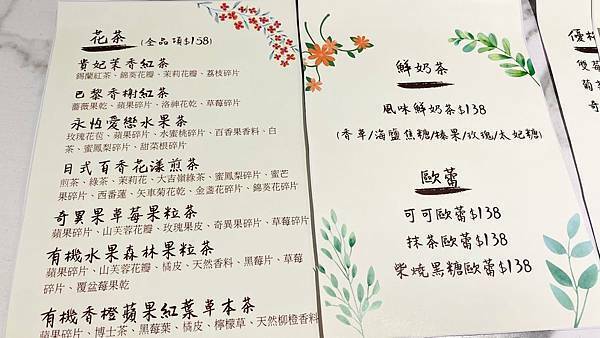 花茶 (全品項$158)
貴妃茉香紅茶
錫蘭紅茶、錦葵花瓣、茉莉花瓣、荔枝碎片
巴黎香榭紅茶
薔薇果乾、蘋果碎片、洛神花乾、草莓碎片
永恆愛戀水果茶
玫瑰花苞、蘋果碎片、水蜜桃碎片、百香果香料、白
茶、蜜鳳梨碎片、甜菜根碎片
日式百香花漾煎茶
煎茶、綠茶、茉莉花、大吉嶺綠茶、蜜鳳梨碎片、蜜芒
果碎片、西番蓮、矢車菊花乾、金盞花碎片、錦葵花碎片
奇異果草莓果粒茶
蘋果碎片、山芙蓉花瓣、玫瑰果皮、奇異果碎片、草莓碎片
有機水果森林果粒茶
蘋果碎片、山芙蓉花瓣、橘皮、天然香料、黑莓片、草莓
碎片、覆盆莓果乾
有機香橙蘋果紅葉草本茶
蘋果碎片、博士茶、黑莓葉、橘皮、檸檬草、天然柳橙香料
鮮奶茶
風味鮮奶茶$138
(香草/海鹽焦糖/榛果/玫瑰/太妃糖)
歐蕾
可可歐蕾$138
抹茶歐蕾$138
柴燒黑糖歐蕾$138